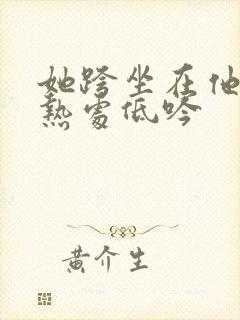 她跨坐在他
熱處低吟
黄介生